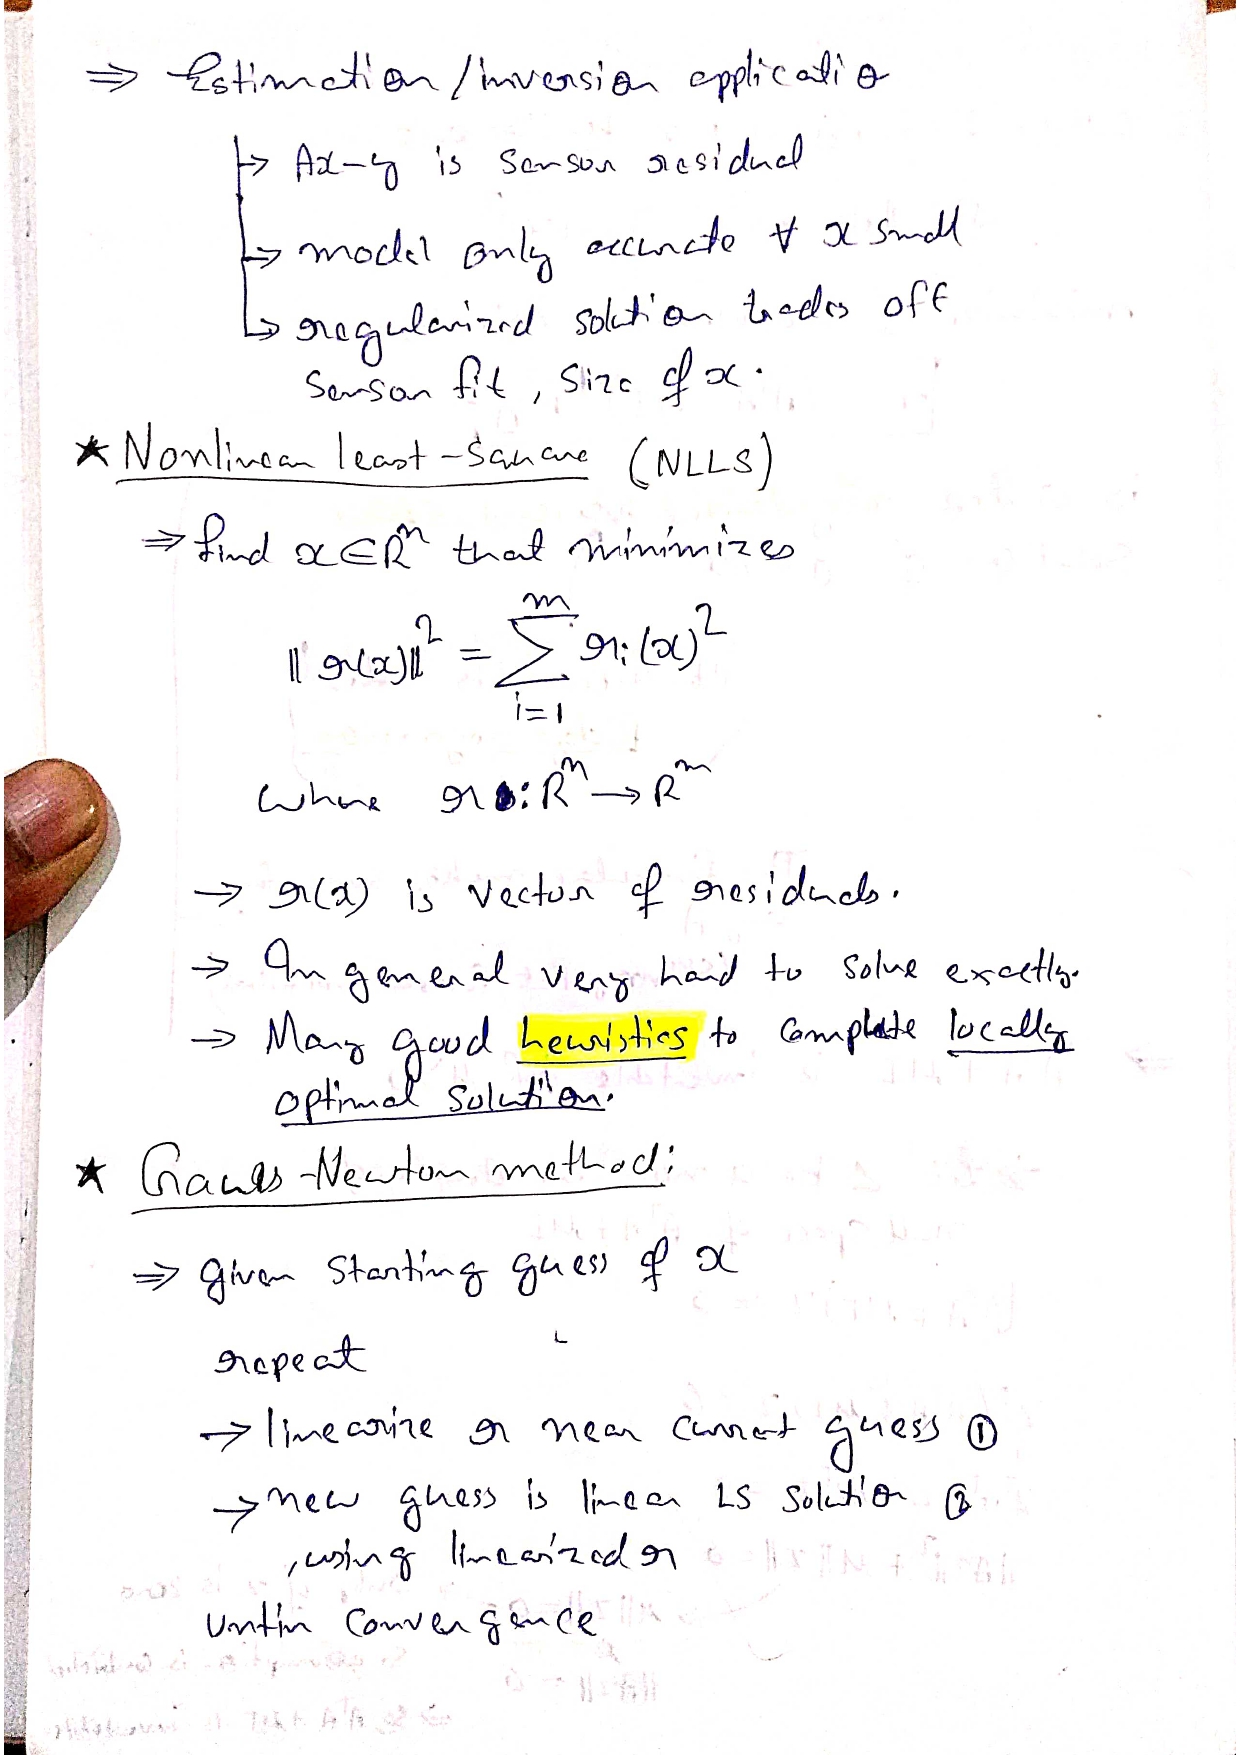 ⇒ Estimation/inversion applicatio
↳ Ax-y is sensor residual
↳ model only accurate ∀ x small
↳ regularized solution trades off
sensor fit, size of x.
★ Nonlinear least-square (NLLS)
⇒ find x∈Rⁿ that minimizes
‖r(x)‖² = Σ rᵢ(x)²
m
i=1
where r : Rⁿ → Rᵐ
→ r(x) is vector of residuals.
→ In general very hard to solve exactly.
→ Many good heuristics to complete locally
optimal solution.
★ Gauss-Newton method:
⇒ given starting guess of x
repeat
→ linearize r near current guess ①
→ new guess is linear LS solution ②
, using linearized r
untin convergence